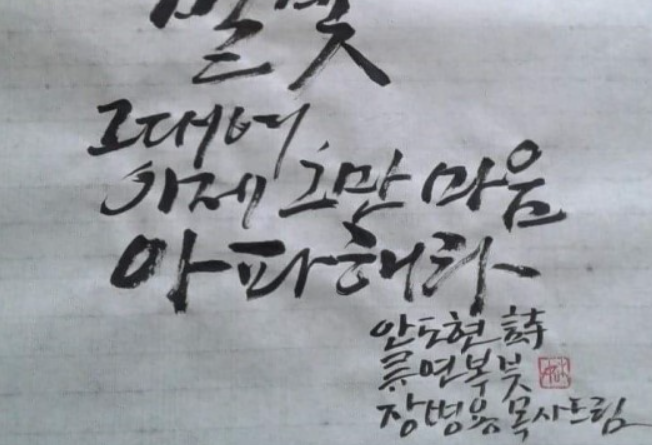 별빛
그대여,
이제 그만 마음
아파해라
안도현 詩
류연복 붓
장병용 목사드림